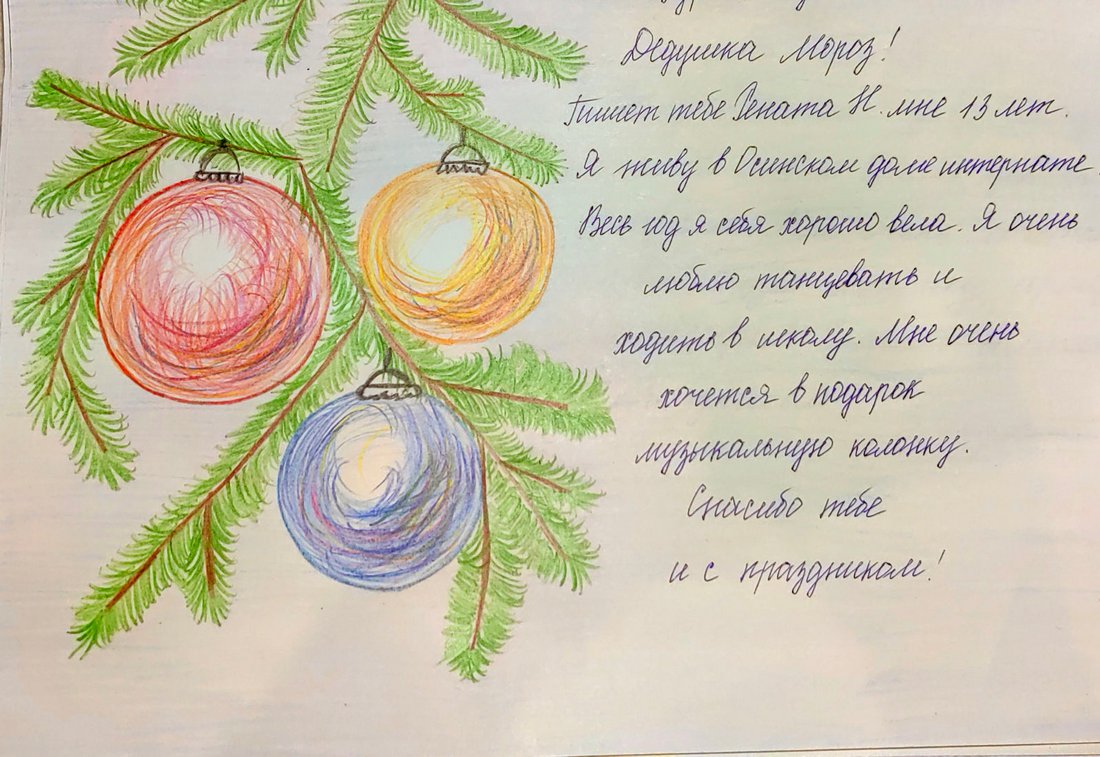 Дедушка Мороз!
Пишет тебе Рената Н. мне 13 лет.
Я живу в Осинском доме интернате.
Весь год я себя хорошо вела. Я очень
люблю танцевать и
ходить в школу. Мне очень
хочется в подарок
музыкальную колонку.
Спасибо тебе
и с праздником!